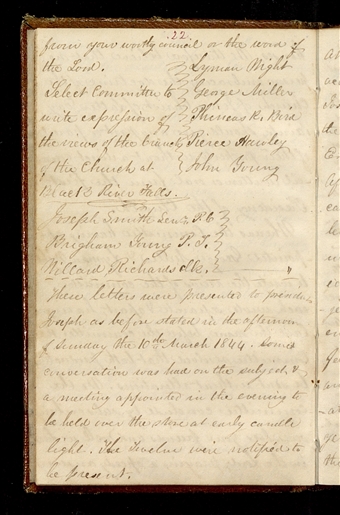 22.
from your worthy council or the word of
the Lord. Lyman Wight
Select Committee to George Miller
write expression of Phineas R. Bird
the views of the branch Pierce Hawley
of the Church at John Young
Black River Falls.
Joseph Smith Senr.
Brigham Young P. T.
Willard Richards Clk.
These letters were presented to
Joseph as before stated in the afternoon
of Sunday the 10th March 1844. Some
conversation was had on the subject, &
a meeting appointed in the evening to
be held over the store at early candle
light. The Twelve were notified to
be present.